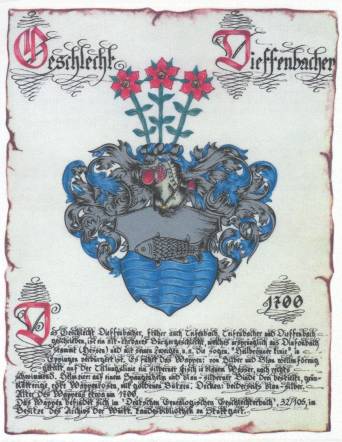 Geschlecht Dieffenbacher
1700
Das Geschlecht Dieffenbacher, früher auch Tufenbach, Tiefenbacher und Dieffenbach
geschrieben, ist ein alt-ehrbares Bürgergeschlecht, welches ursprünglich aus Diefenbach
stammt (Hessen) und mit seinen Zweigen u.a. die sogen. "Heilbronner Linie" in
Eppingen verbürgert ist. Es führt das Wappen: von Silber und Blau wellenförmig
geteilt, auf der Teilungslinie ein silberner Fisch in blauem Wasser, nach rechts
schwimmend. Helmzier: aus einem Spangenhelm mit blau-silberner Binde drei gestielte, grün-
blättrige, rote Wappenrosen, mit goldenen Butzen. Decken: beiderseits blau-silber.
Alter des Wappens etwa um 1700.
Das Wappen befindet sich im "Deutschen Genealogischen Geschlechterbuch", 32/106, im
Besitze des Archivs der Württ. Landesbibliothek in Stuttgart.